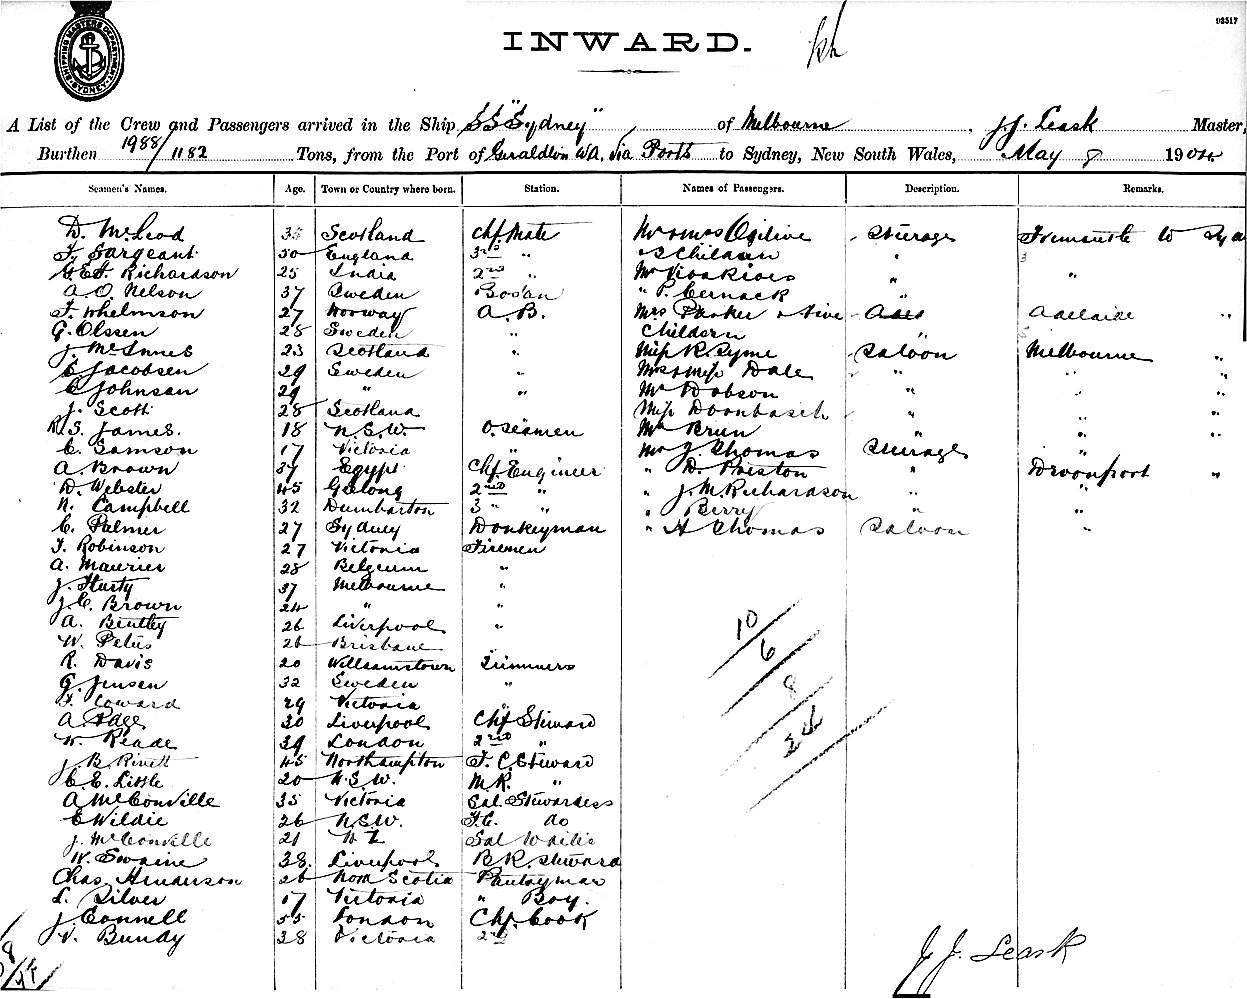 SHIPPING MASTERS DEPARTMENT SYDNEY
93517
INWARD.
A List of the Crew and Passengers arrived in the Ship SS "Sydney" of Melbourne, J. J. Leask Master,
Burthen 1988/1182 Tons, from the Port of Geraldton WA. via Ports to Sydney, New South Wales, May 8 1904
Seamen's Names. Age. Town or Country where born. Station. Names of Passengers. Description. Remarks.
D. McLeod 35 Scotland Chf. Mate Mr & Mrs Ogilive Steerage Fremantle to Syd
F. Sargeant 50 England 3rd " 3 Children "
G. E. F. Richardson 25 India 2nd " Mr " "
A. O. Nelson 37 Sweden Bosan " P. Cernack "
F. Whelmson 27 Norway A.B. Mrs Parker & five Adel Adelaide "
G. Olssen 28 Sweden " Children "
J. McInnes 23 Scotland " Miss R. Syme Saloon Melbourne "
C. Jacobsen 29 Sweden " Mrs & Miss Dale " " "
C. Johnson 29 " " Mr Dobson " " "
J. Scott 28 Scotland " Miss Doonbasch " " "
R. S. James. 18 N.S.W. O. Seamen Mr Brun " " "
C. Samson 17 Victoria " Mr J. Thomas Steerage "
A. Brown 37 Egypt Chf Engineer " D. Preston " Devonport "
D. Webster 45 Gelong 2nd " " J. M. Richardson " "
N. Campbell 32 Dumbarton 3 " " " Berry " "
C. Palmer 27 Sydney Donkeyman " A Thomas Saloon "
F. Robinson 27 Victoria Firemen
A. Maurier 28 Belgeum "
J. Hurty 37 Melbourne "
J. C. Brown 24 " "
A. Bentley 26 Liverpool "
W. Petus 26 Brisbane
R. Davis 20 Williamstown Trimmers
G. Jensen 32 Sweden "
F. Coward 29 Victoria "
A. Page 30 Liverpool Chf Steward
W. Reade 39 London 2nd "
J. B. Rivett 45 Northampton F. C. Steward
C. E. Little 20 N.S.W. M.R. "
A McConville 35 Victoria Sal. Stewardess
E Wildie 26 N.S.W. F.C. do
J. McConville 21 N Z Sal Waiter
W. Swaine 38. Liverpool B R. Steward
Chas. Henderson 26 Nova Scotia Pantryman
L. Silver 17 Victoria " Boy.
J. Connell 55 London Chf. Cook
V. Bundy 38 Victoria 2nd
10
6
8
24
J. J. Leask